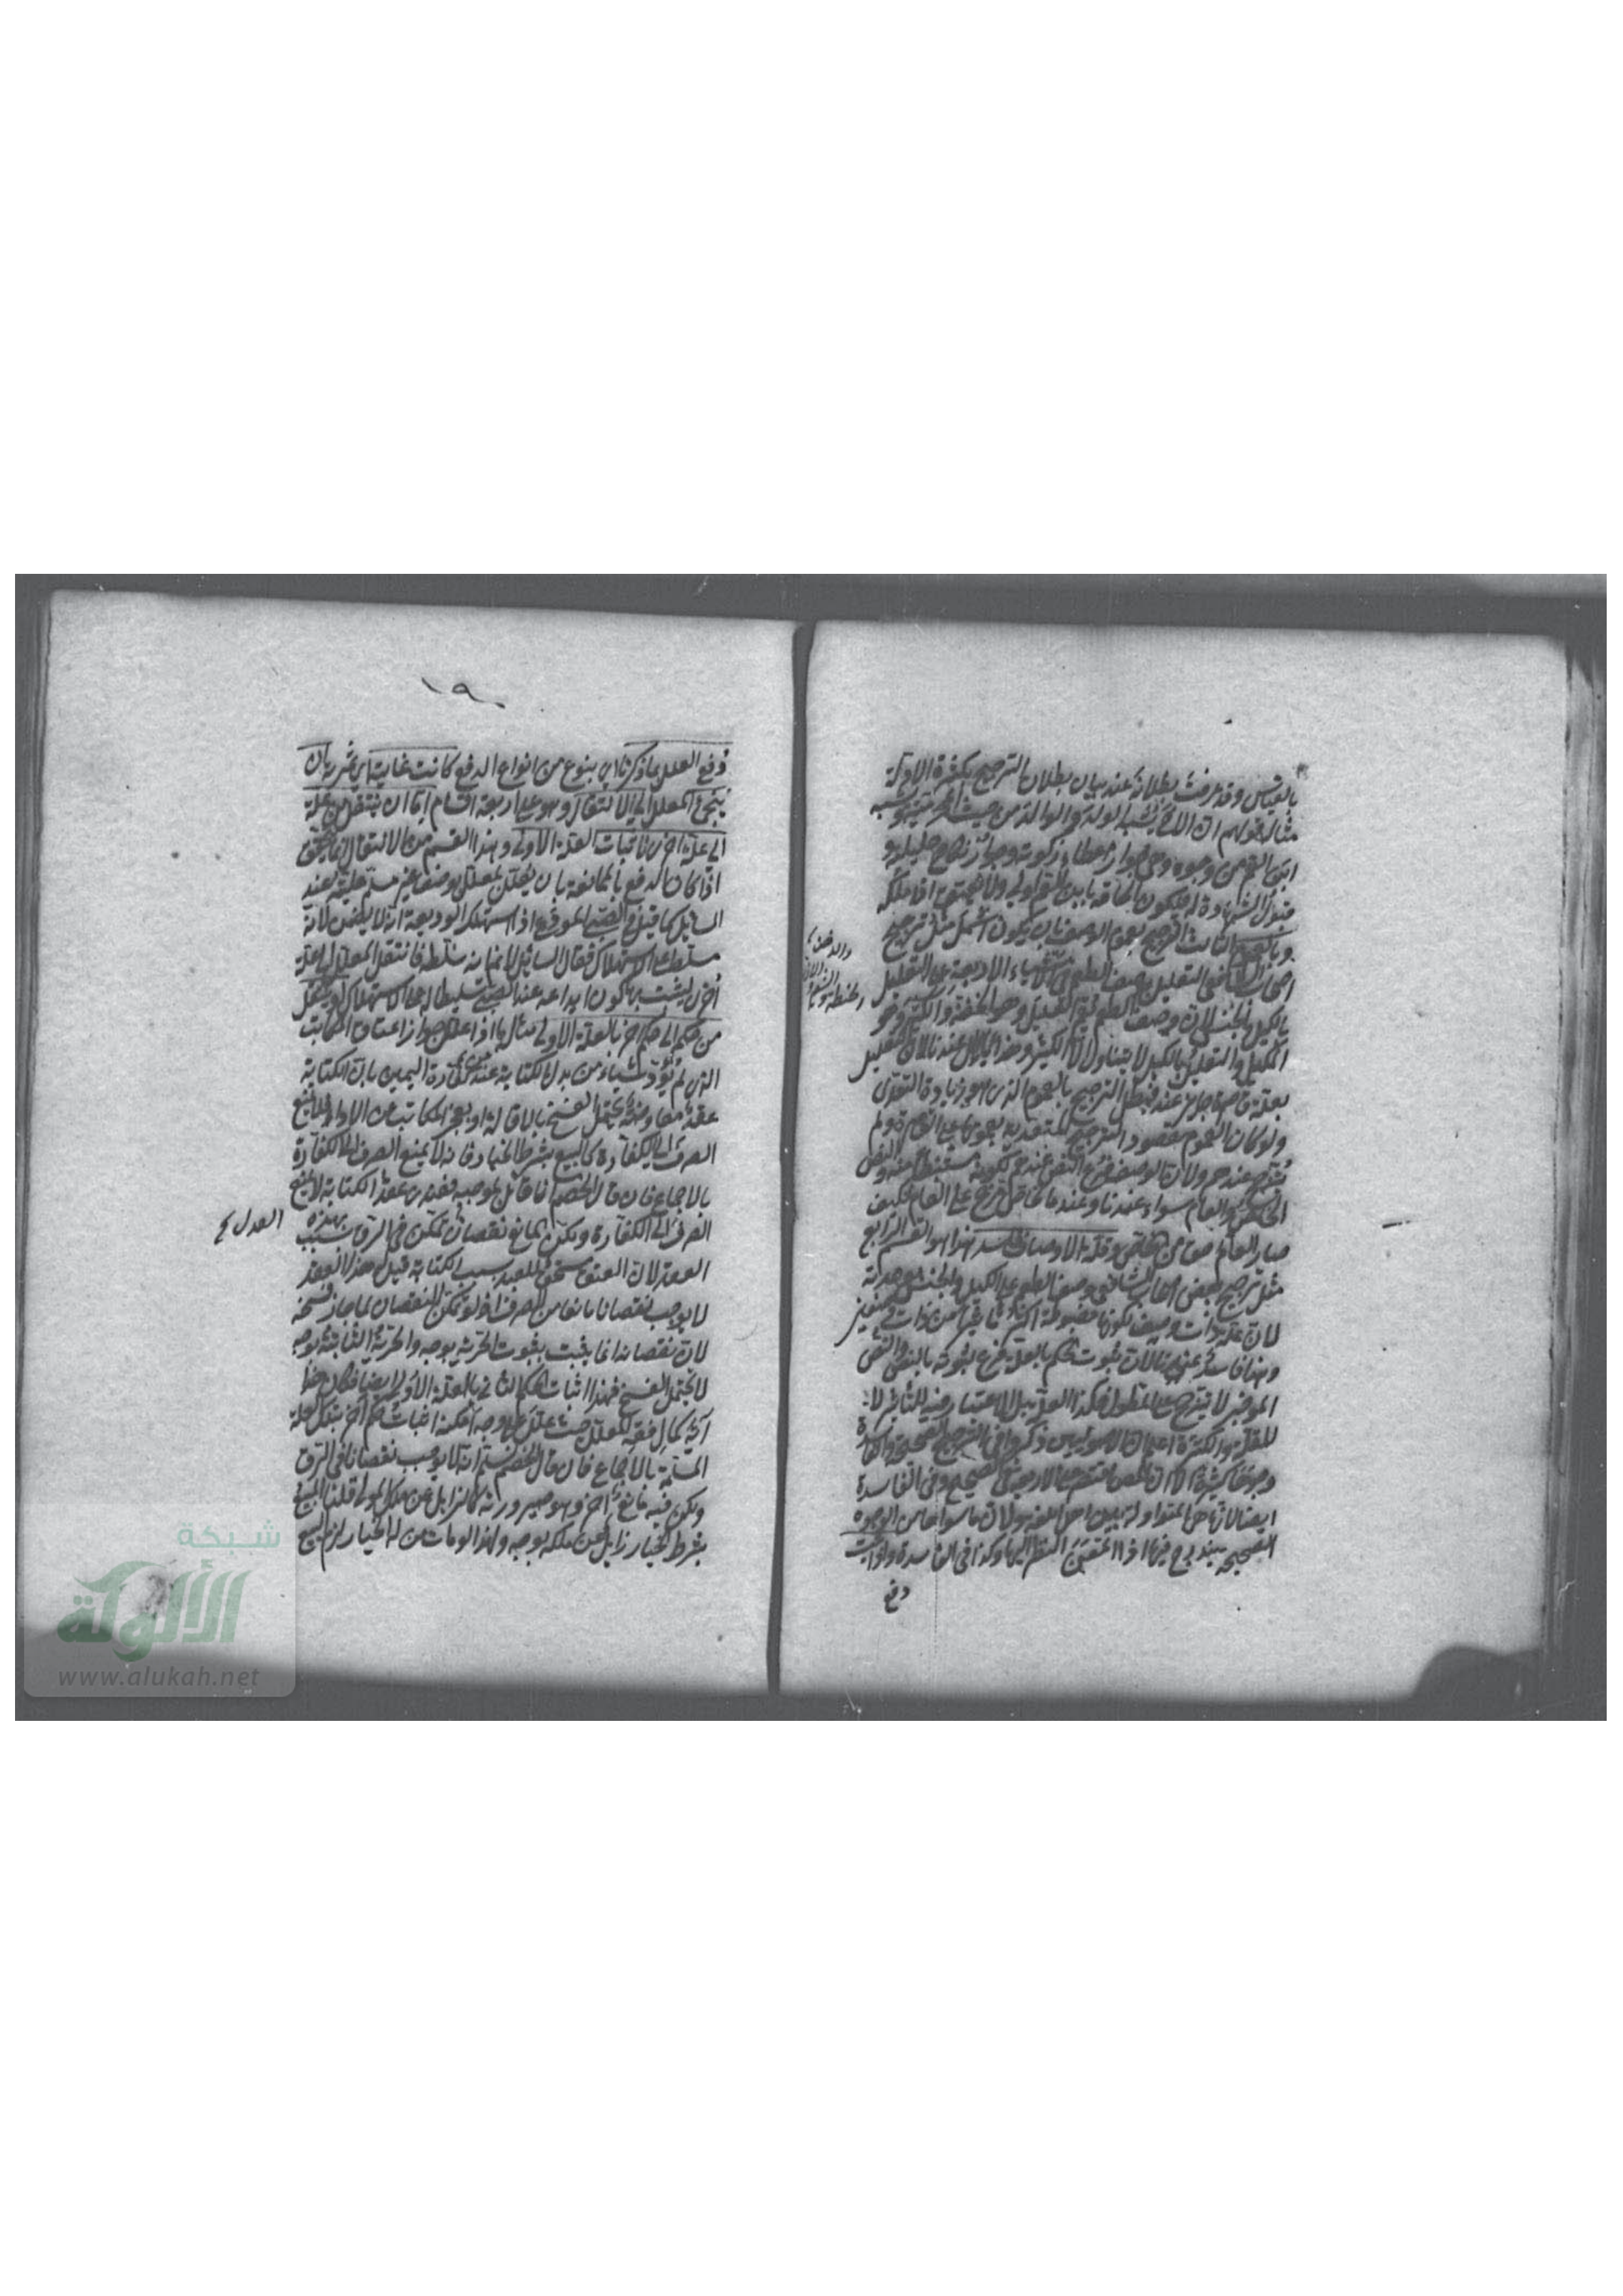 بالقياس وقد عرفت بطلانه عند بيان بطلان الترجيح بكثرة الادلة
مثاله قولهم ان الاخ يشبه الولد والوالد من حيث المحرمية ويشبه
ابن العم من وجوه وهي جواز اعطاء زكوته وجواز نكاح حليلته و
قبول الشهادة له فيكون الحاقه بابن العم اولى ولا يعتق اذا ملكه
وبالعموم الثالث الترجيح بعموم الوصف بان يكون اشمل مثل ترجيح
اصحاب الشافعي التعليل بوصف الطعم في الاشياء الاربعة على التعليل
بالكيل والجنس لان وصف الطعم يعم القليل وهو الحفنة والكثير وهو
المكيل والتعليل بالكيل لا يتناول الا الكثير وهذا باطل عندنا لان التعليل
بعلة قاصرة جايز عنده فبطل الترجيح بالعموم الذي هو زيادة التعدي
ولو كان العموم مقصودا لترجح المتعدية بعمومها على القاصرة ولم
يترجح عنده ولان الوصف فرع النص عندهم لكونه مستنبطا منه والنص
الخاص والعام سواء عندنا وعنده الخاص يترجح على العام فكيف
صار العام احق من الخاص وقلة الاوصاف فاسد هذا هو القسم الرابع
مثل ترجيح بعض اصحاب الشافعي وصف الطعم على الكيل والجنس بوحدته
لان علة ذات وصف لكونها مضبوطة اكثر تاثيرا من ذات وصفين
وهذا فاسد عندنا لان ثبوت الحكم بالعلة فرع لثبوته بالنص والنص
الموجز لا يترجح على المطول فكذا العلة بل الاعتبار فيه للتاثير لا
للقلة والكثرة اعلم ان الاصوليين ذكروا في الترجيح الصحيحة والفاسدة
وجوها كثيرة الا ان المص اقتصر على الاربعة في الصحيح وفي الفاسدة
ايضا لانها هي المتداولة بين اهل الفقه ولان ما سواها من الوجوه
الصحيحة يندرج فيها اذا امعن النظر اليها وكذا في الفاسدة واذا ثبت
دفع
١٩٠
دفع العلل بما ذكرنا اي بنوع من انواع الدفع كانت غايته اي ثمرته ان
يلتجئ المعلل الى الانتقال وهو على اربعة اقسام اما ان ينتقل من علة
الى علة اخرى لاثبات العلة الاولى وهذا القسم من الانتقال انما يتحقق
اذا كان الدفع بالممانعة بان يعلل المعلل بوصف غير مسلم عليته عند
السائل كما قيل في الصبي المودع اذا استهلك الوديعة انه لا يضمن لانه
مسلط على الاستهلاك فقال السائل لا نم انه سلطه فانتقل المعلل الى علة
اخرى ليثبت بها كون ايداعه عند الصبي تسليطا له على الاستهلاك او ينتقل
من حكم الى حكم اخر بالعلة الاولى مثاله ما اذا علل جواز اعتاق المكاتب
الذي لم يؤد شياء من بدل الكتابة عن كفارة اليمين بان الكتابة
عقد معاوضة يحتمل الفسخ بالاقالة او بعجز المكاتب عن الاداء فلا يمنع
الصرف الى الكفارة كالبيع بشرط الخيار فانه لا يمنع الصرف الى الكفارة
بالاجماع فان قال الخصم انا قائل بموجبه فعندي عقد الكتابة لا يمنع
الصرف الى الكفارة ولكن المانع نقصان تمكن في الرق بسبب هذه
العقد لان العتق مستحق للعبد بسبب الكتابة قيل هذا العقد
لا يوجب نقصانا مانعا من الصرف اذ لو تمكن النقصان لما جاز فسخه
لان نقصانه انما يثبت بثبوت الحرية بوجه والحرية الثابتة بوجه
لا يحتمل الفسخ فهذا اثبات الحكم الثاني بالعلة الاولى ايضا فكان هذا
آية كمال فقه المعلل حيث علل على وجه امكنه اثبات حكم اخر بتلك العلة
المسلمة بالاجماع فان قال الخصم نسلم انه لا يوجب نقصانا في الرق
ولكن فيه مانع اخر وهو صيرورته كالزايل عن ملك المولى قلنا المبيع
بشرط الخيار زايل عن ملكه بوجه ولهذا لو مات من له الخيار لزم البيع
العدل
شبكة
الألوكة
www.alukah.net